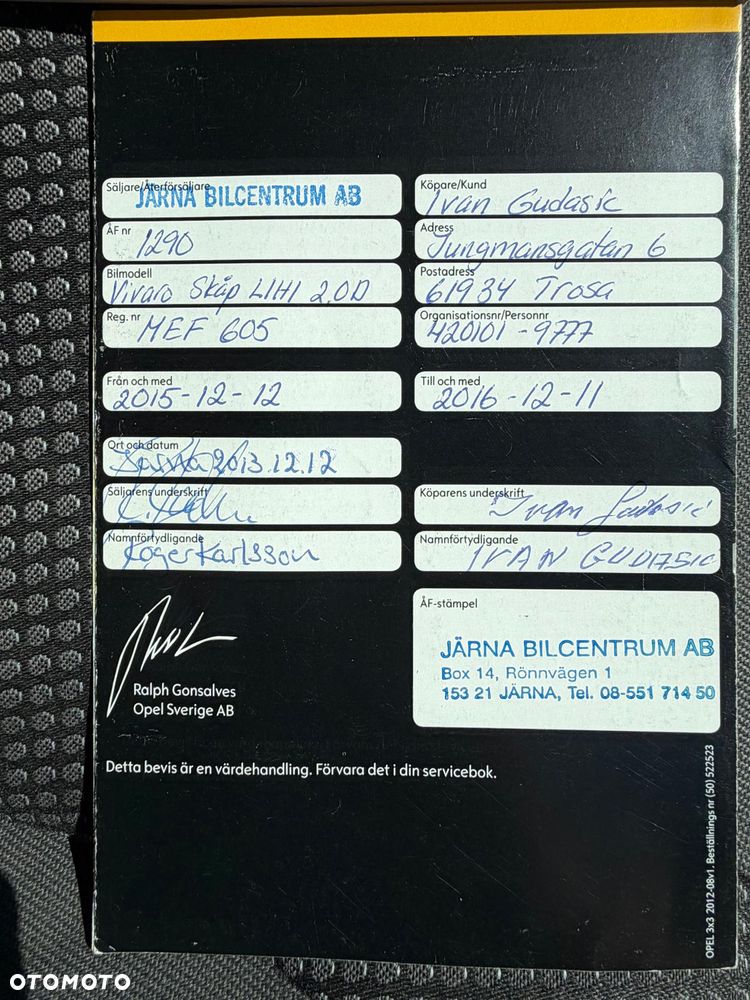 Säljare/Återförsäljare
JÄRNA BILCENTRUM AB
Köpare/Kund
Ivan Gudasic
ÅF nr
1290
Adress
Jungmansgatan 6
Bilmodell
Vivaro Skåp L1H1 2,0D
Postadress
61934 Trosa
Reg. nr
MEF 605
Organisationsnr/Personnr
420101-9777
Från och med
2015-12-12
Till och med
2016-12-11
Ort och datum
Järna 2013.12.12
Säljarens underskrift
Köparens underskrift
Ivan Gudasic
Namnförtydligande
Roger Karlsson
Namnförtydligande
IVAN GUDASIC
Ralph Gonsalves
Opel Sverige AB
ÅF-stämpel
JÄRNA BILCENTRUM AB
Box 14, Rönnvägen 1
153 21 JÄRNA, Tel. 08-551 714 50
Detta bevis är en värdehandling. Förvara det i din servicebok.
OPEL 3x3 2012-08v1. Beställnings nr (50) 522523
OTOMOTO